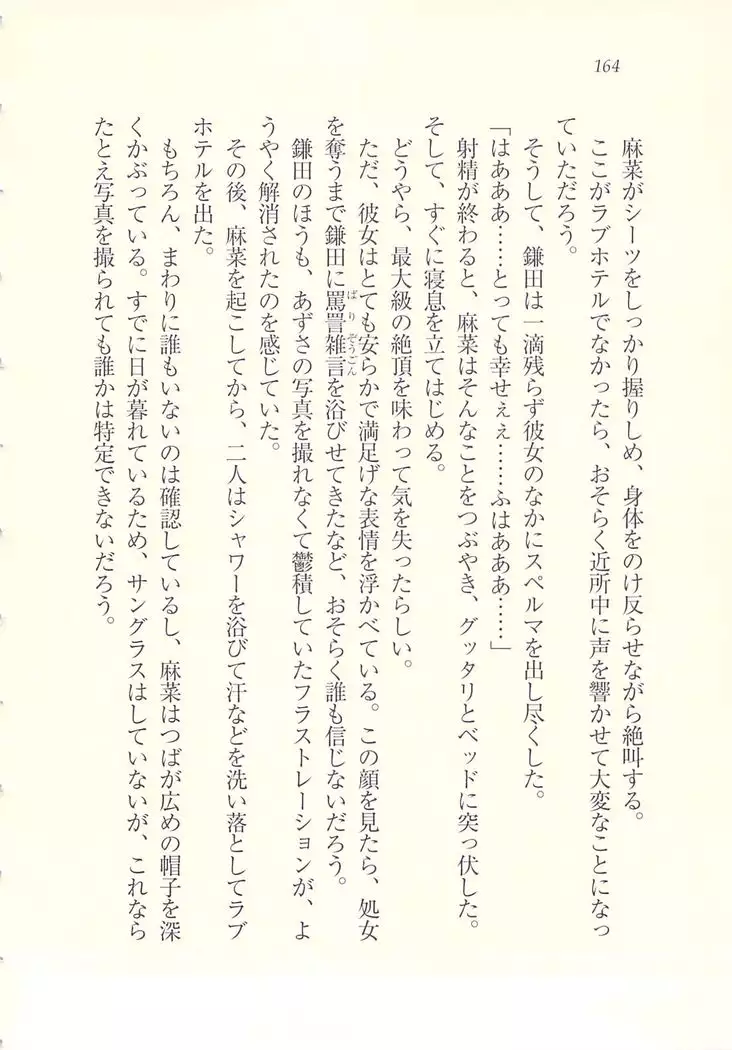 164
麻菜がシーツをしっかり握りしめ、身体をのけ反らせながら絶叫する。
ここがラブホテルでなかったら、おそらく近所中に声を響かせて大変なことになっ
ていただろう。
そうして、鎌田は一滴残らず彼女のなかにスペルマを出し尽くした。
「はあああ……とっても幸せぇぇ……ふはあああ……」
射精が終わると、麻菜はそんなことをつぶやき、グッタリとベッドに突っ伏した。
そして、すぐに寝息を立てはじめる。
どうやら、最大級の絶頂を味わって気を失ったらしい。
ただ、彼女はとても安らかで満足げな表情を浮かべている。この顔を見たら、処女
を奪うまで鎌田に罵詈雑言を浴びせてきたなど、おそらく誰も信じないだろう。
鎌田のほうも、あずさの写真を撮れなくて鬱積していたフラストレーションが、よ
うやく解消されたのを感じていた。
その後、麻菜を起こしてから、二人はシャワーを浴びて汗などを洗い落としてラブ
ホテルを出た。
もちろん、まわりに誰もいないのは確認しているし、麻菜はつばが広めの帽子を深
くかぶっている。すでに日が暮れているため、サングラスはしていないが、これなら
たとえ写真を撮られても誰かは特定できないだろう。